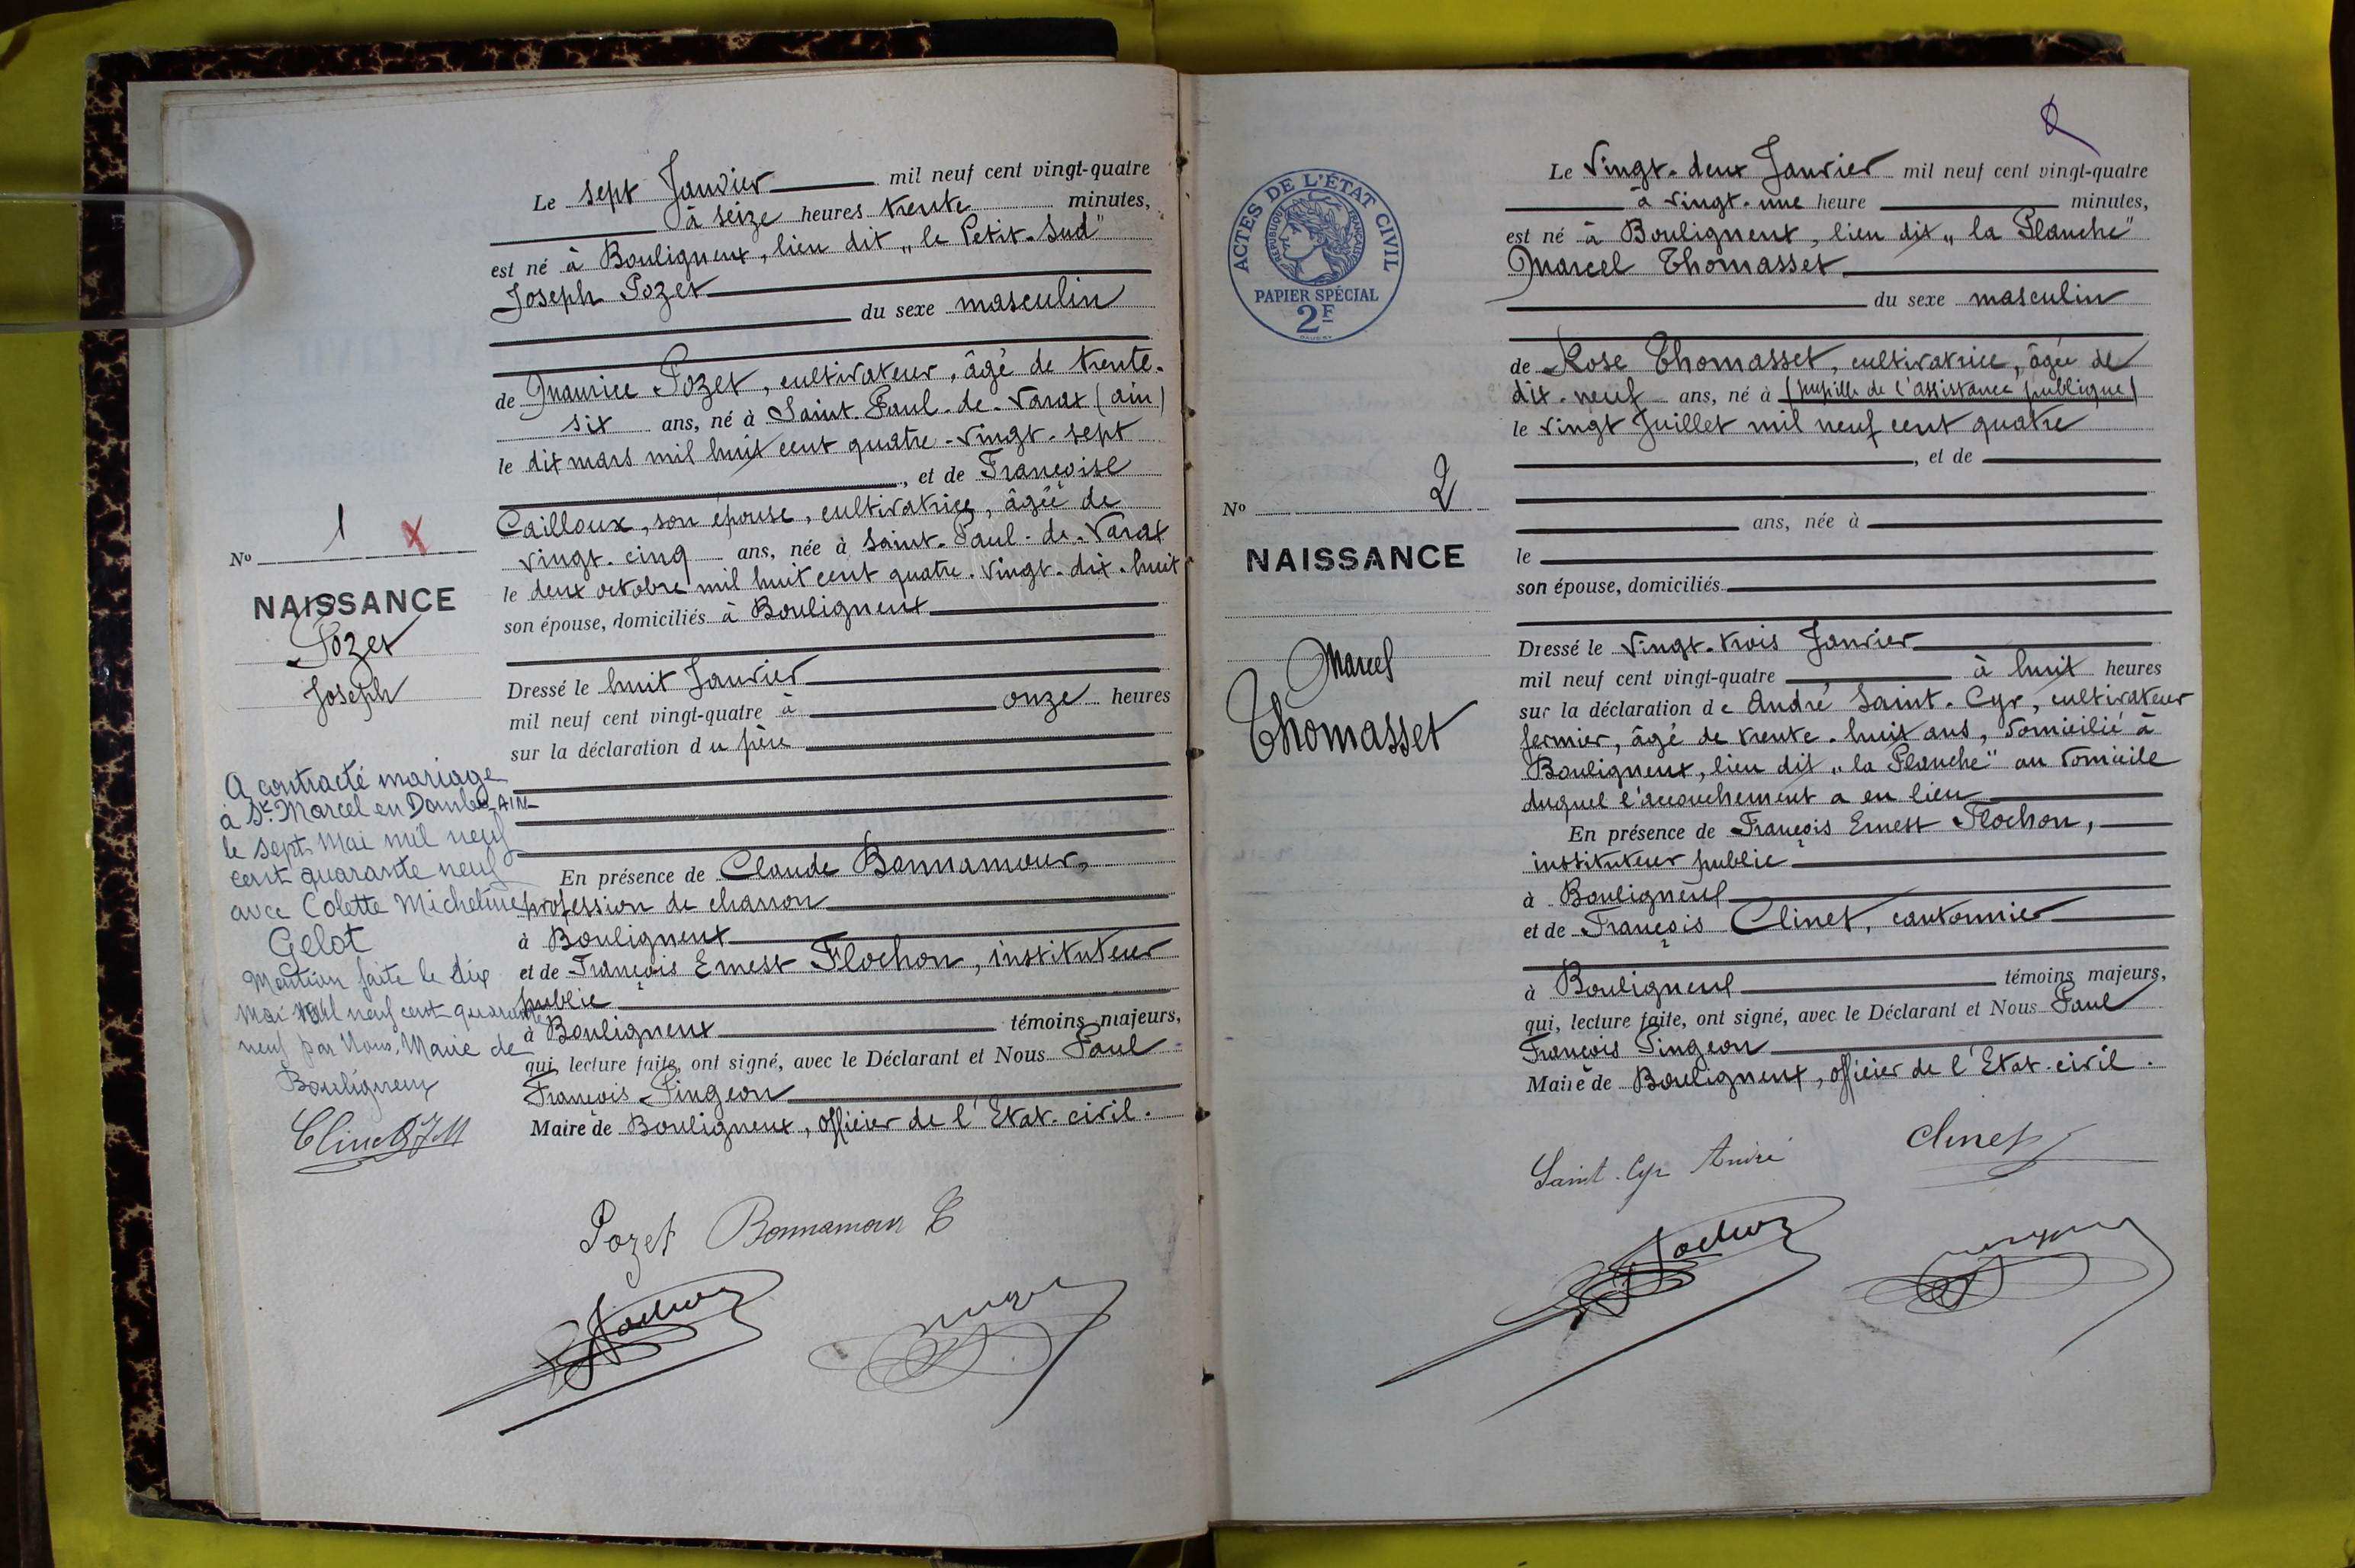 Le sept Janvier mil neuf cent vingt-quatre
à seize heures trente minutes,
est né à Bouligneux, lieu dit „le Petit-Sud"
Joseph Pozet
du sexe masculin
de Maurice Pozet, cultivateur, âgé de trente-
six ans, né à Saint-Paul-de-Varax (ain)
le dix mars mil huit cent quatre-vingt-sept
, et de Françoise
Cailloux, son épouse, cultivatrice, âgée de
vingt-cinq ans, née à Saint-Paul-de-Varax
le deux octobre mil huit cent quatre-vingt-dix-huit
son épouse, domiciliés à Bouligneux
Dressé le huit Janvier
mil neuf cent vingt-quatre à onze heures
sur la déclaration du père
En présence de Claude Bonnamour,
profession de charron
à Bouligneux
et de François Ernest Flochon, instituteur
public
à Bouligneux témoins majeurs,
qui, lecture faite, ont signé, avec le Déclarant et Nous Paul
François Pingeon
Maire de Bouligneux, officier de l'Etat-civil.
Pozet Bonnamour C
No 1 X
NAISSANCE
Pozet
Joseph
A contracté mariage
à St. Marcel en Dombes-AIN
le sept Mai mil neuf
cent quarante neuf
avec Colette Micheline
Gelot
Mention faite le dix
Mai mil neuf cent quarante
neuf par Nous, Maire de
Bouligneux
ACTES DE L'ÉTAT CIVIL
RÉPUBLIQUE FRANÇAISE
PAPIER SPÉCIAL
2F
No 2
NAISSANCE
Marcel
Thomasset
Le Vingt-deux Janvier mil neuf cent vingt-quatre
à vingt-une heure minutes,
est né à Bouligneux, lieu dit „la Planche"
Marcel Thomasset
du sexe masculin
de Rose Thomasset, cultivatrice, âgée de
dix-neuf ans, né à (pupille de l'assistance publique)
le vingt Juillet mil neuf cent quatre
, et de
ans, née à
le
son épouse, domiciliés
Dressé le vingt-trois Janvier
mil neuf cent vingt-quatre à huit heures
sur la déclaration de André Saint-Cyr, cultivateur
fermier, âgé de trente-huit ans, domicilié à
Bouligneux, lieu dit „la Planche" au domicile
duquel l'accouchement a eu lieu
En présence de François Ernest Flochon,
instituteur public
à Bouligneux
et de François Clinet, cantonnier
à Bouligneux témoins majeurs,
qui, lecture faite, ont signé, avec le Déclarant et Nous Paul
François Pingeon
Maire de Bouligneux, officier de l'Etat-civil.
Saint-Cyr André Clinet